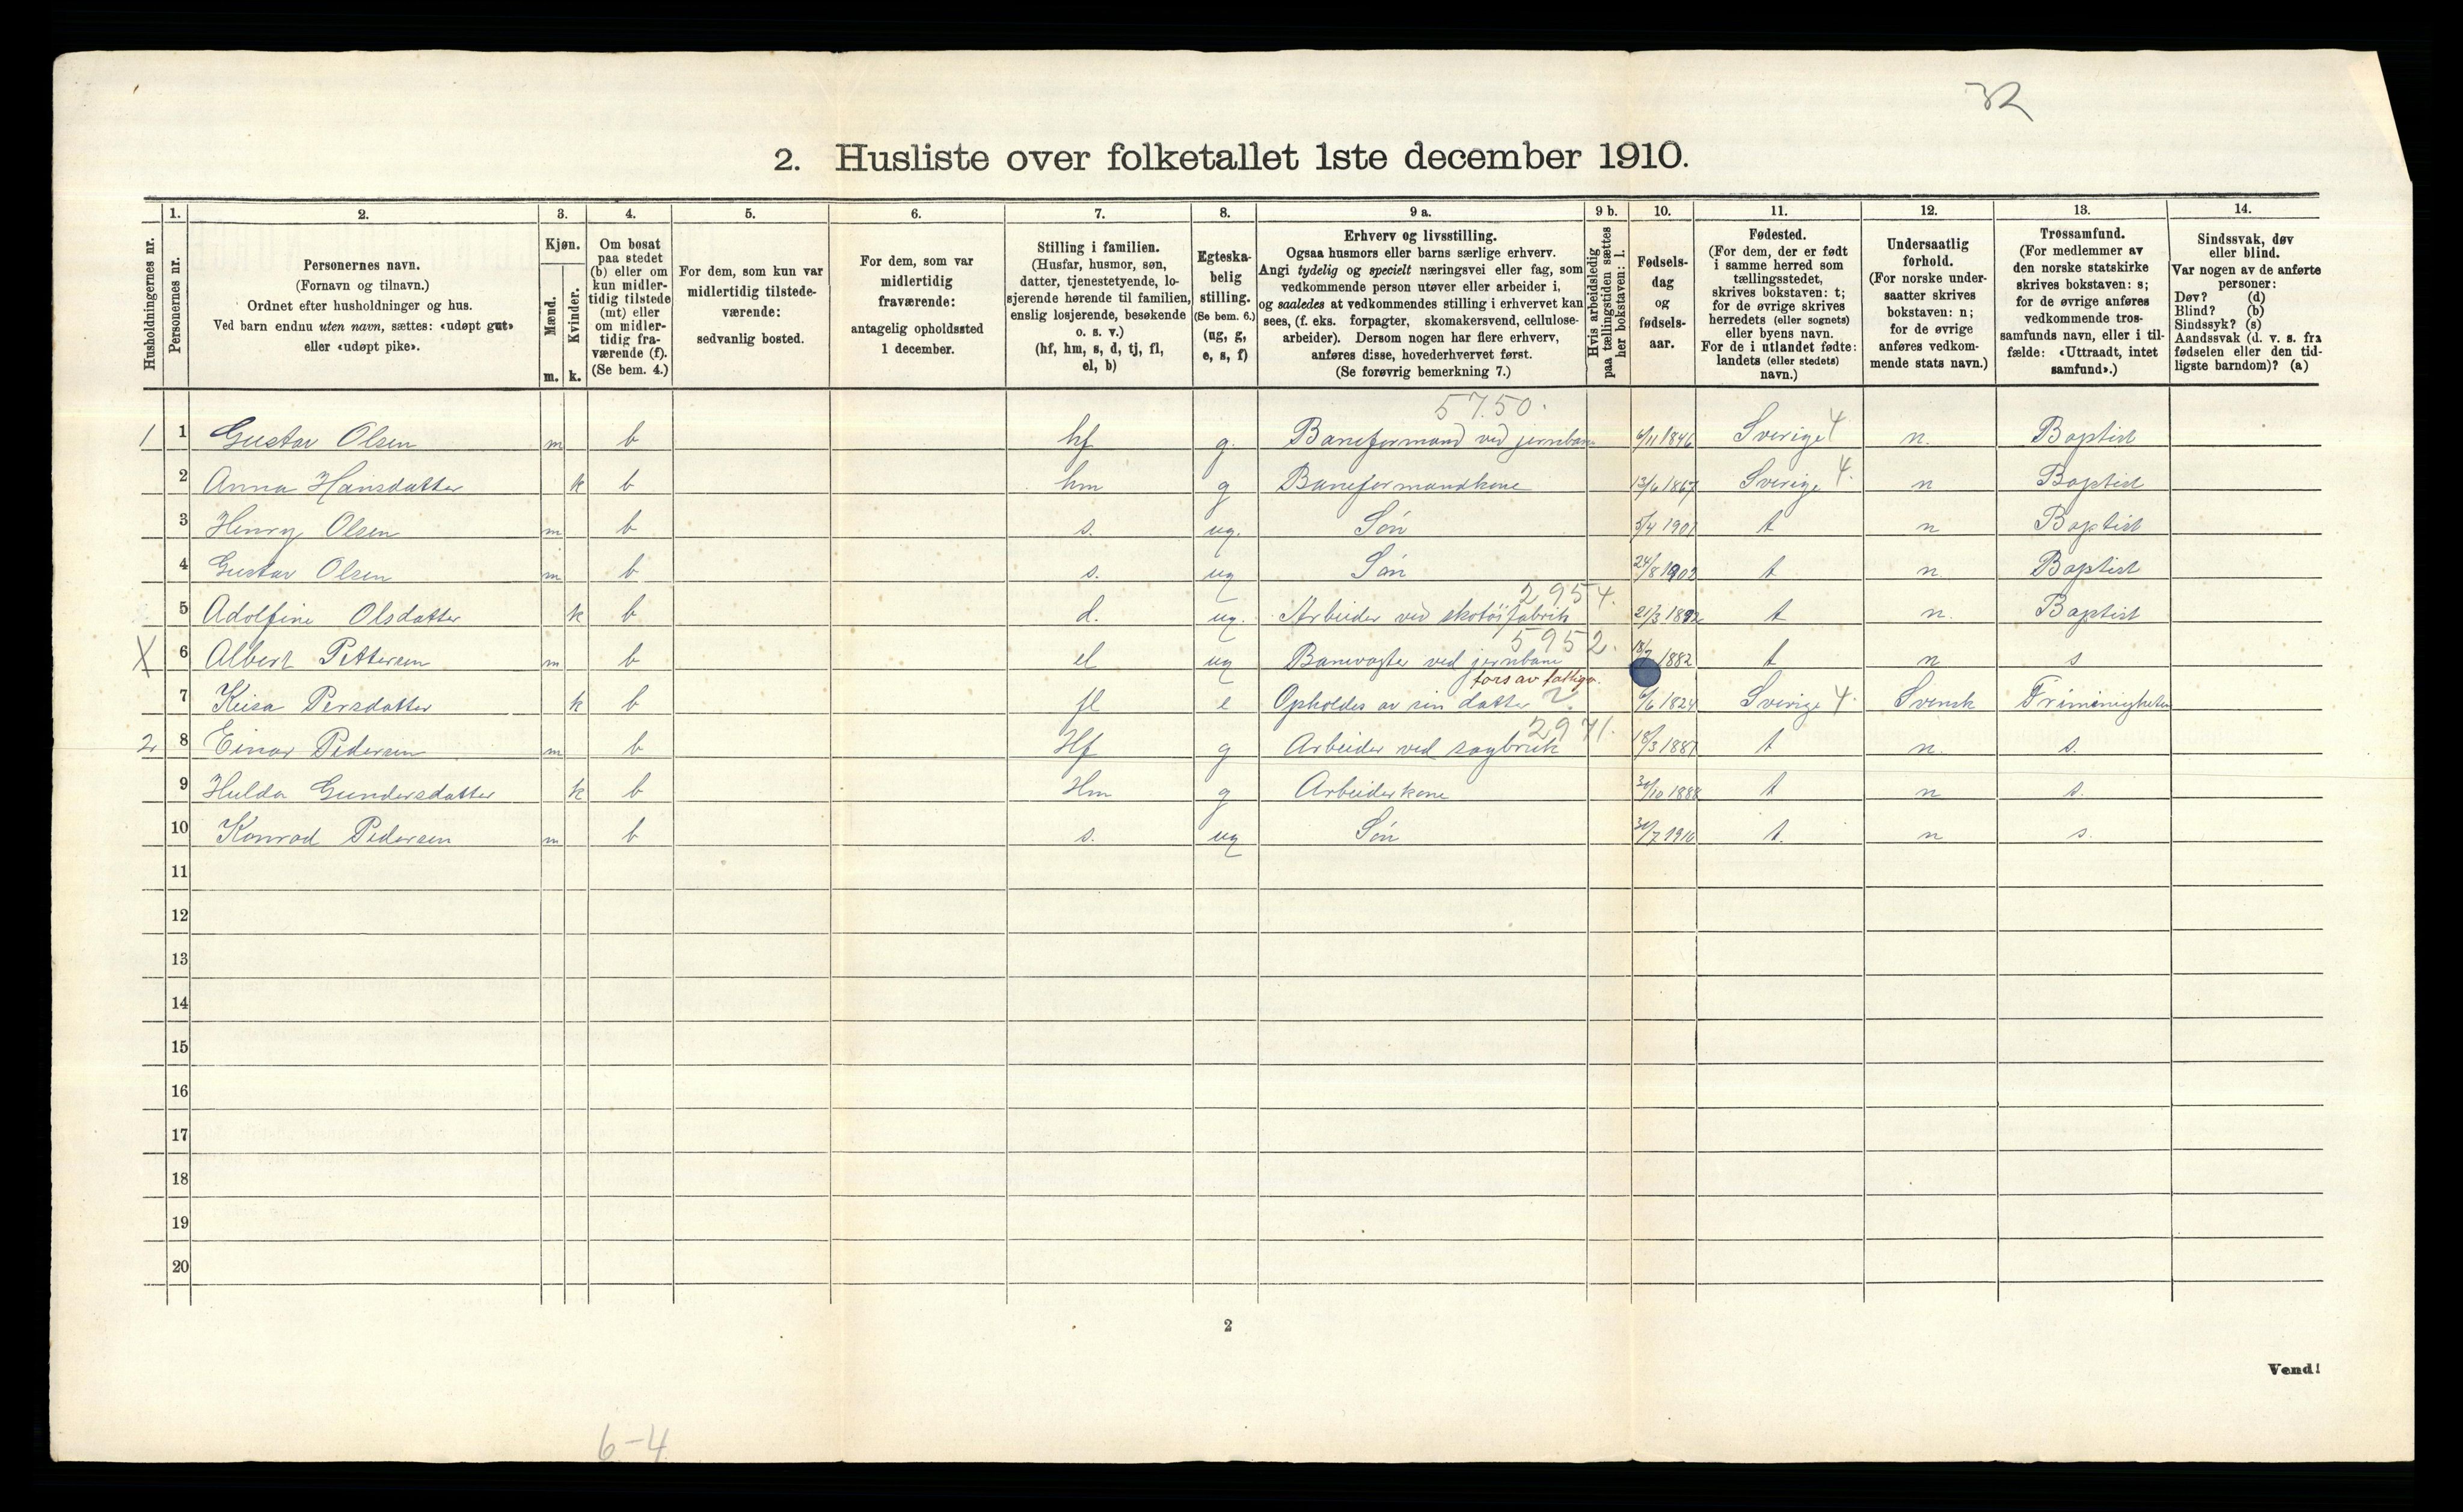 32
2. Husliste over folketallet 1ste december 1910.
Husholdningernes nr.
1. Personernes nr.
2. Personernes navn.
(Fornavn og tilnavn.)
Ordnet efter husholdninger og hus.
Ved barn endnu uten navn, sættes: «udøpt gut»
eller «udøpt pike».
3. Kjøn.
Mænd. m.
Kvinder. k.
4. Om bosat
paa stedet
(b) eller om
kun midler-
tidig tilstede
(mt) eller
om midler-
tidig fra-
værende (f).
(Se bem. 4.)
5. For dem, som kun var
midlertidig tilstede-
værende:
sedvanlig bosted.
6. For dem, som var
midlertidig
fraværende:
antagelig opholdssted
1 december.
7. Stilling i familien.
(Husfar, husmor, søn,
datter, tjenestetyende, lo-
sjerende hørende til familien,
enslig losjerende, besøkende
o. s. v.)
(hf, hm, s, d, tj, fl,
el, b)
8. Egteska-
belig
stilling.
(Se bem. 6.)
(ug, g,
e, s, f)
9 a. Erhverv og livsstilling.
Ogsaa husmors eller barns særlige erhverv.
Angi tydelig og specielt næringsvei eller fag, som
vedkommende person utøver eller arbeider i,
og saaledes at vedkommendes stilling i erhvervet kan
sees, (f. eks. forpagter, skomakersvend, cellulose-
arbeider). Dersom nogen har flere erhverv,
anføres disse, hovederhvervet først.
(Se forøvrig bemerkning 7.)
9 b. Hvis arbeidsledig
paa tællingstiden sættes
her bokstaven: l.
10. Fødsels-
dag
og
fødsels-
aar.
11. Fødested.
(For dem, der er født
i samme herred som
tællingsstedet,
skrives bokstaven: t;
for de øvrige skrives
herredets (eller sognets)
eller byens navn.
For de i utlandet fødte:
landets (eller stedets)
navn.)
12. Undersaatlig
forhold.
(For norske under-
saatter skrives
bokstaven: n;
for de øvrige
anføres vedkom-
mende stats navn.)
13. Trossamfund.
(For medlemmer av
den norske statskirke
skrives bokstaven: s;
for de øvrige anføres
vedkommende tros-
samfunds navn, eller i til-
fælde: «Uttraadt, intet
samfund».)
14. Sindssvak, døv
eller blind.
Var nogen av de anførte
personer:
Døv? (d)
Blind? (b)
Sindssyk? (s)
Aandssvak (d. v. s. fra
fødselen eller den tid-
ligste barndom)? (a)
5750.
1 1 Gustav Olsen m b hf g. Baneformand ved jernbane 6/11 1846 Sverige 4 n. Baptist
2 Anna Hansdatter k b hm g Baneformandkone 13/6 1867 Sverige 4. n Baptist
3 Henry Olsen m b s. ug. Søn 5/4 1901 t n Baptist
4 Gustav Olsen m b s. ug Søn 24/8 1902 t n. Baptist
2954.
5 Adolfine Olsdatter k b d. ug. Arbeider ved skotøifabrik 21/3 1892 t n. Baptist
5952.
X 6 Albert Pettersen m b el ug Banevogter ved jernbane 1882 t n s
fors av fattigv.
7 Persdatter k b fl e Opholdes av sin datter 2. 6/6 1824 Sverige 4. Svensk Frimenigheten
2971.
2 8 Einar Pedersen m b Hf g Arbeider ved sagbruk 18/3 1887 t n. s.
9 Hulda Gundersdatter k b Hm g Arbeiderkone 30/10 1888 t n s.
10 Konrad Pedersen m b s. ug Søn 30/7 1910 t. n s.
11
12
13
14
15
16
17
18
19
20
2
Vend!
6-4